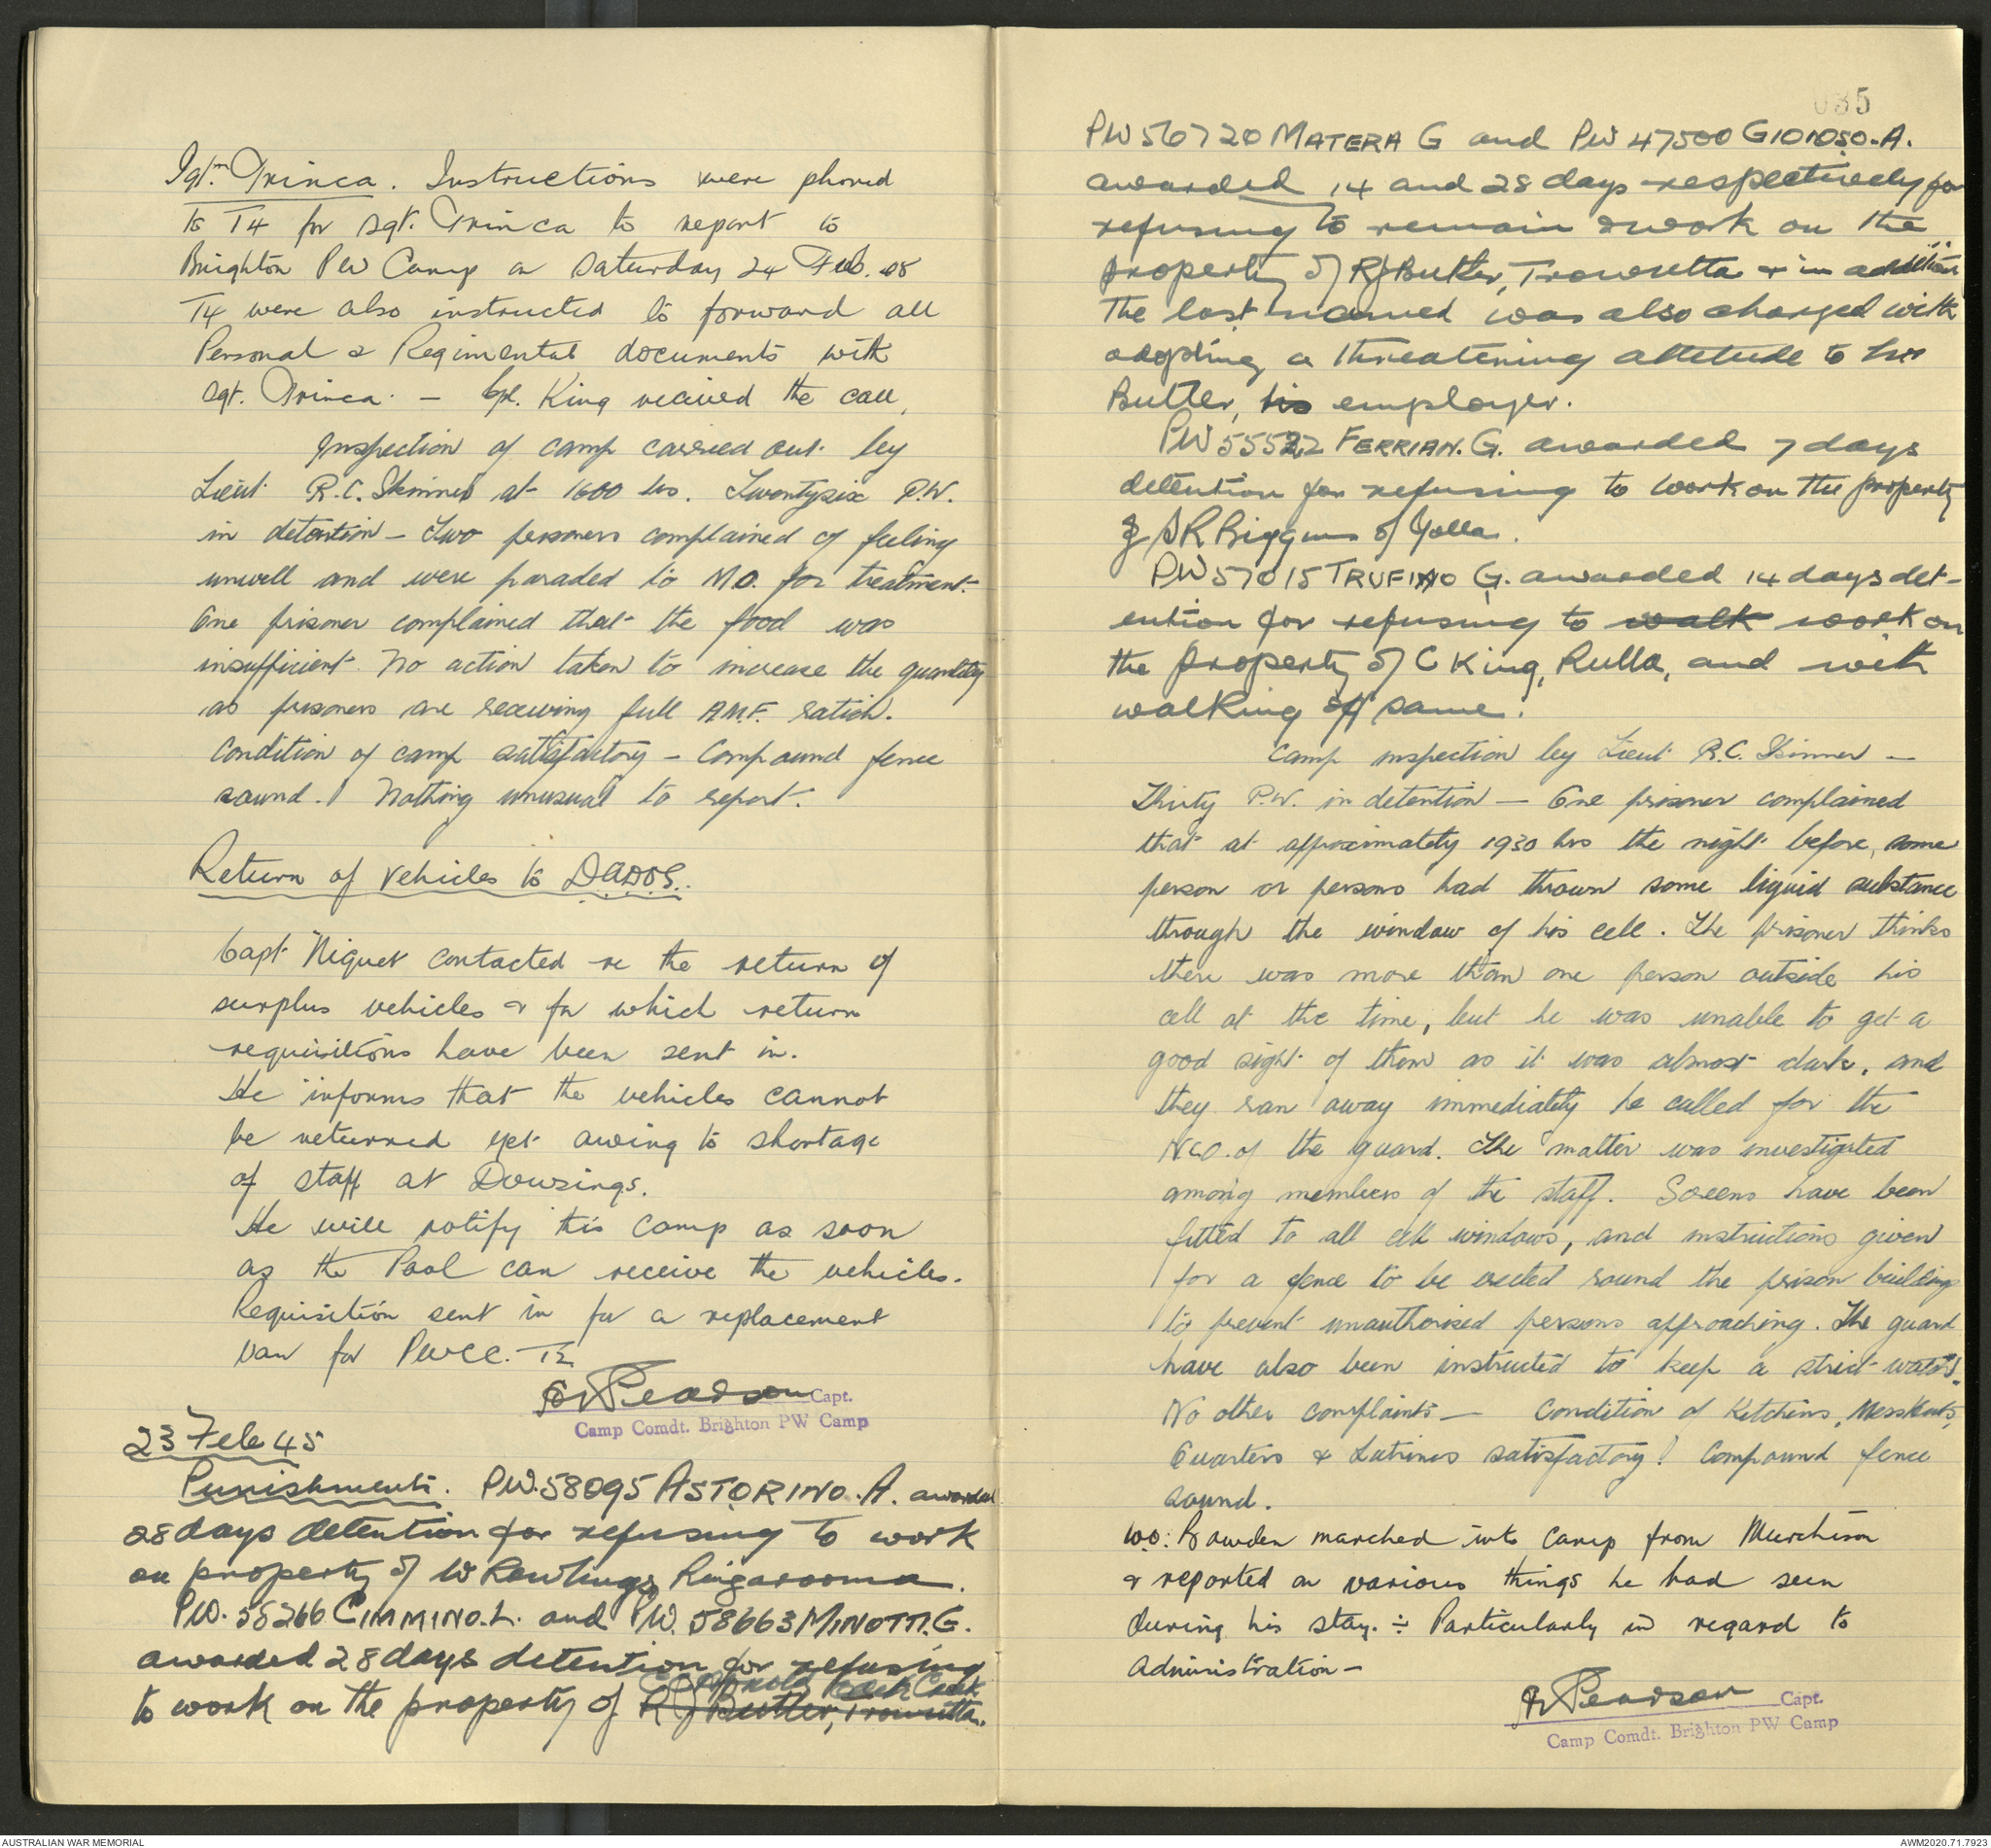 Sgt. Trinca. Instructions were phoned
to T4 for Sgt. Trinca to report to
Brighton PW Camp on Saturday 24 Feb. 
T4 were also instructed to forward all
Personal & Regimental documents with
Sgt. Trinca. - Cpl. King received the call.
Inspection of camp carried out by
Lieut R.C. Skinner at 1600 hrs. Twentysix P.W.
in detention - Two prisoners complained of feeling
unwell and were paraded to M.O. for treatment.
One prisoner complained that the food was
insufficient. No action taken to increase the quantity
as prisoners are receiving full A.M.F. ration.
Condition of camp satisfactory - Compound fence
sound. Nothing unusual to report.
Return of vehicles to DADOS.
Capt Niquet contacted re the return of
surplus vehicles & for which return
requisitions have been sent in.
He informs that the vehicles cannot
be returned yet owing to shortage
of staff at Dowsings.
He will notify this camp as soon
as the Pool can receive the vehicles.
Requisition sent in for a replacement
van for PWCC.
Pearson Capt.
Camp Comdt. Brighton PW Camp
23 Feb 45
Punishments. PW.58095 ASTORINO. A. awarded
28 days detention for refusing to work
on property of W Rawlings Ringarooma.
PW. 55266 CIMMINO. L. and PW. 58663 MINOTTI. G.
awarded 28 days detention for refusing
to work on the property of R J Butler, Trowutta.
035
PW 56720 MATERA G and PW 47500 GIOIOSO. A.
awarded 14 and 28 days respectively for
refusing to remain & work on the
property of R J Butler, Trowutta & in addition
the last named was also charged with
adopting a threatening attitude to Mr
Butler, his employer.
PW 55522 FERRIAN. G. awarded 7 days
detention for refusing to work on the property
of R Biggins of Yolla.
PW 57015 TRUFINO G. awarded 14 days det-
ention for refusing to walk work on
the property of C King, Rulla, and with
walking off same.
Camp inspection by Lieut R.C. Skinner -
Thirty P.W. in detention - One prisoner complained
that at approximately 1930 hrs the night before, some
person or persons had thrown some liquid substance
through the window of his cell. The prisoner thinks
there was more than one person outside his
cell at the time, but he was unable to get a
good sight of them as it was almost dark, and
they ran away immediately he called for the
NCO. of the guard. The matter was investigated
among members of the staff. Screens have been
fitted to all cell windows, and instructions given
for a fence to be erected round the prison building
to prevent unauthorised persons approaching. The guard
have also been instructed to keep a strict watch.
No other complaints - Condition of Kitchens, Mess Huts,
Quarters & Latrines satisfactory. Compound fence
sound.
W.O. Bowden marched into Camp from Murchison
& reported on various things he had seen
during his stay. ÷ Particularly in regard to
Administration -
Pearson Capt.
Camp Comdt. Brighton PW Camp
AUSTRALIAN WAR MEMORIAL
AWM2020.71.7923